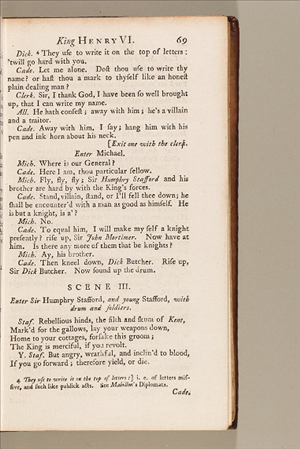 King HENRY VI. 69
Dick. ⁴ They uſe to write it on the top of letters:
'twill go hard with you.
Cade. Let me alone. Doſt thou uſe to write thy
name? or haſt thou a mark to thyſelf like an honeſt
plain dealing man?
Clerk. Sir, I thank God, I have been ſo well brought
up, that I can write my name.
All. He hath confeſt; away with him; he's a villain
and a traitor.
Cade. Away with him, I ſay; hang him with his
pen and ink horn about his neck.
[Exit one with the clerk.
Enter Michael.
Mich. Where is our General?
Cade. Here I am, thou particular fellow.
Mich. Fly, fly, fly; Sir Humphry Stafford and his
brother are hard by with the King's forces.
Cade. Stand, villain, ſtand, or I'll fell thee down; he
ſhall be encounter'd with a man as good as himſelf. He
is but a knight, is a'?
Mich. No.
Cade. To equal him, I will make my ſelf a knight
preſently? riſe up, Sir John Mortimer. Now have at
him. Is there any more of them that be knights?
Mich. Ay, his brother.
Cade. Then kneel down, Dick Butcher. Riſe up,
Sir Dick Butcher. Now ſound up the drum.
SCENE III.
Enter Sir Humphry Stafford, and young Stafford, with
drum and ſoldiers.
Staf. Rebellious hinds, the filth and ſcum of Kent,
Mark'd for the gallows, lay your weapons down,
Home to your cottages, forſake this groom;
The King is merciful, if you revolt.
Y. Staf. But angry, wrathful, and inclin'd to blood,
If you go forward; therefore yield, or die.
4 They uſe to write it on the top of letters:] i. e. of letters miſ-
ſive, and ſuch like publick acts. See Mabillon's Diplomata.
Cade.